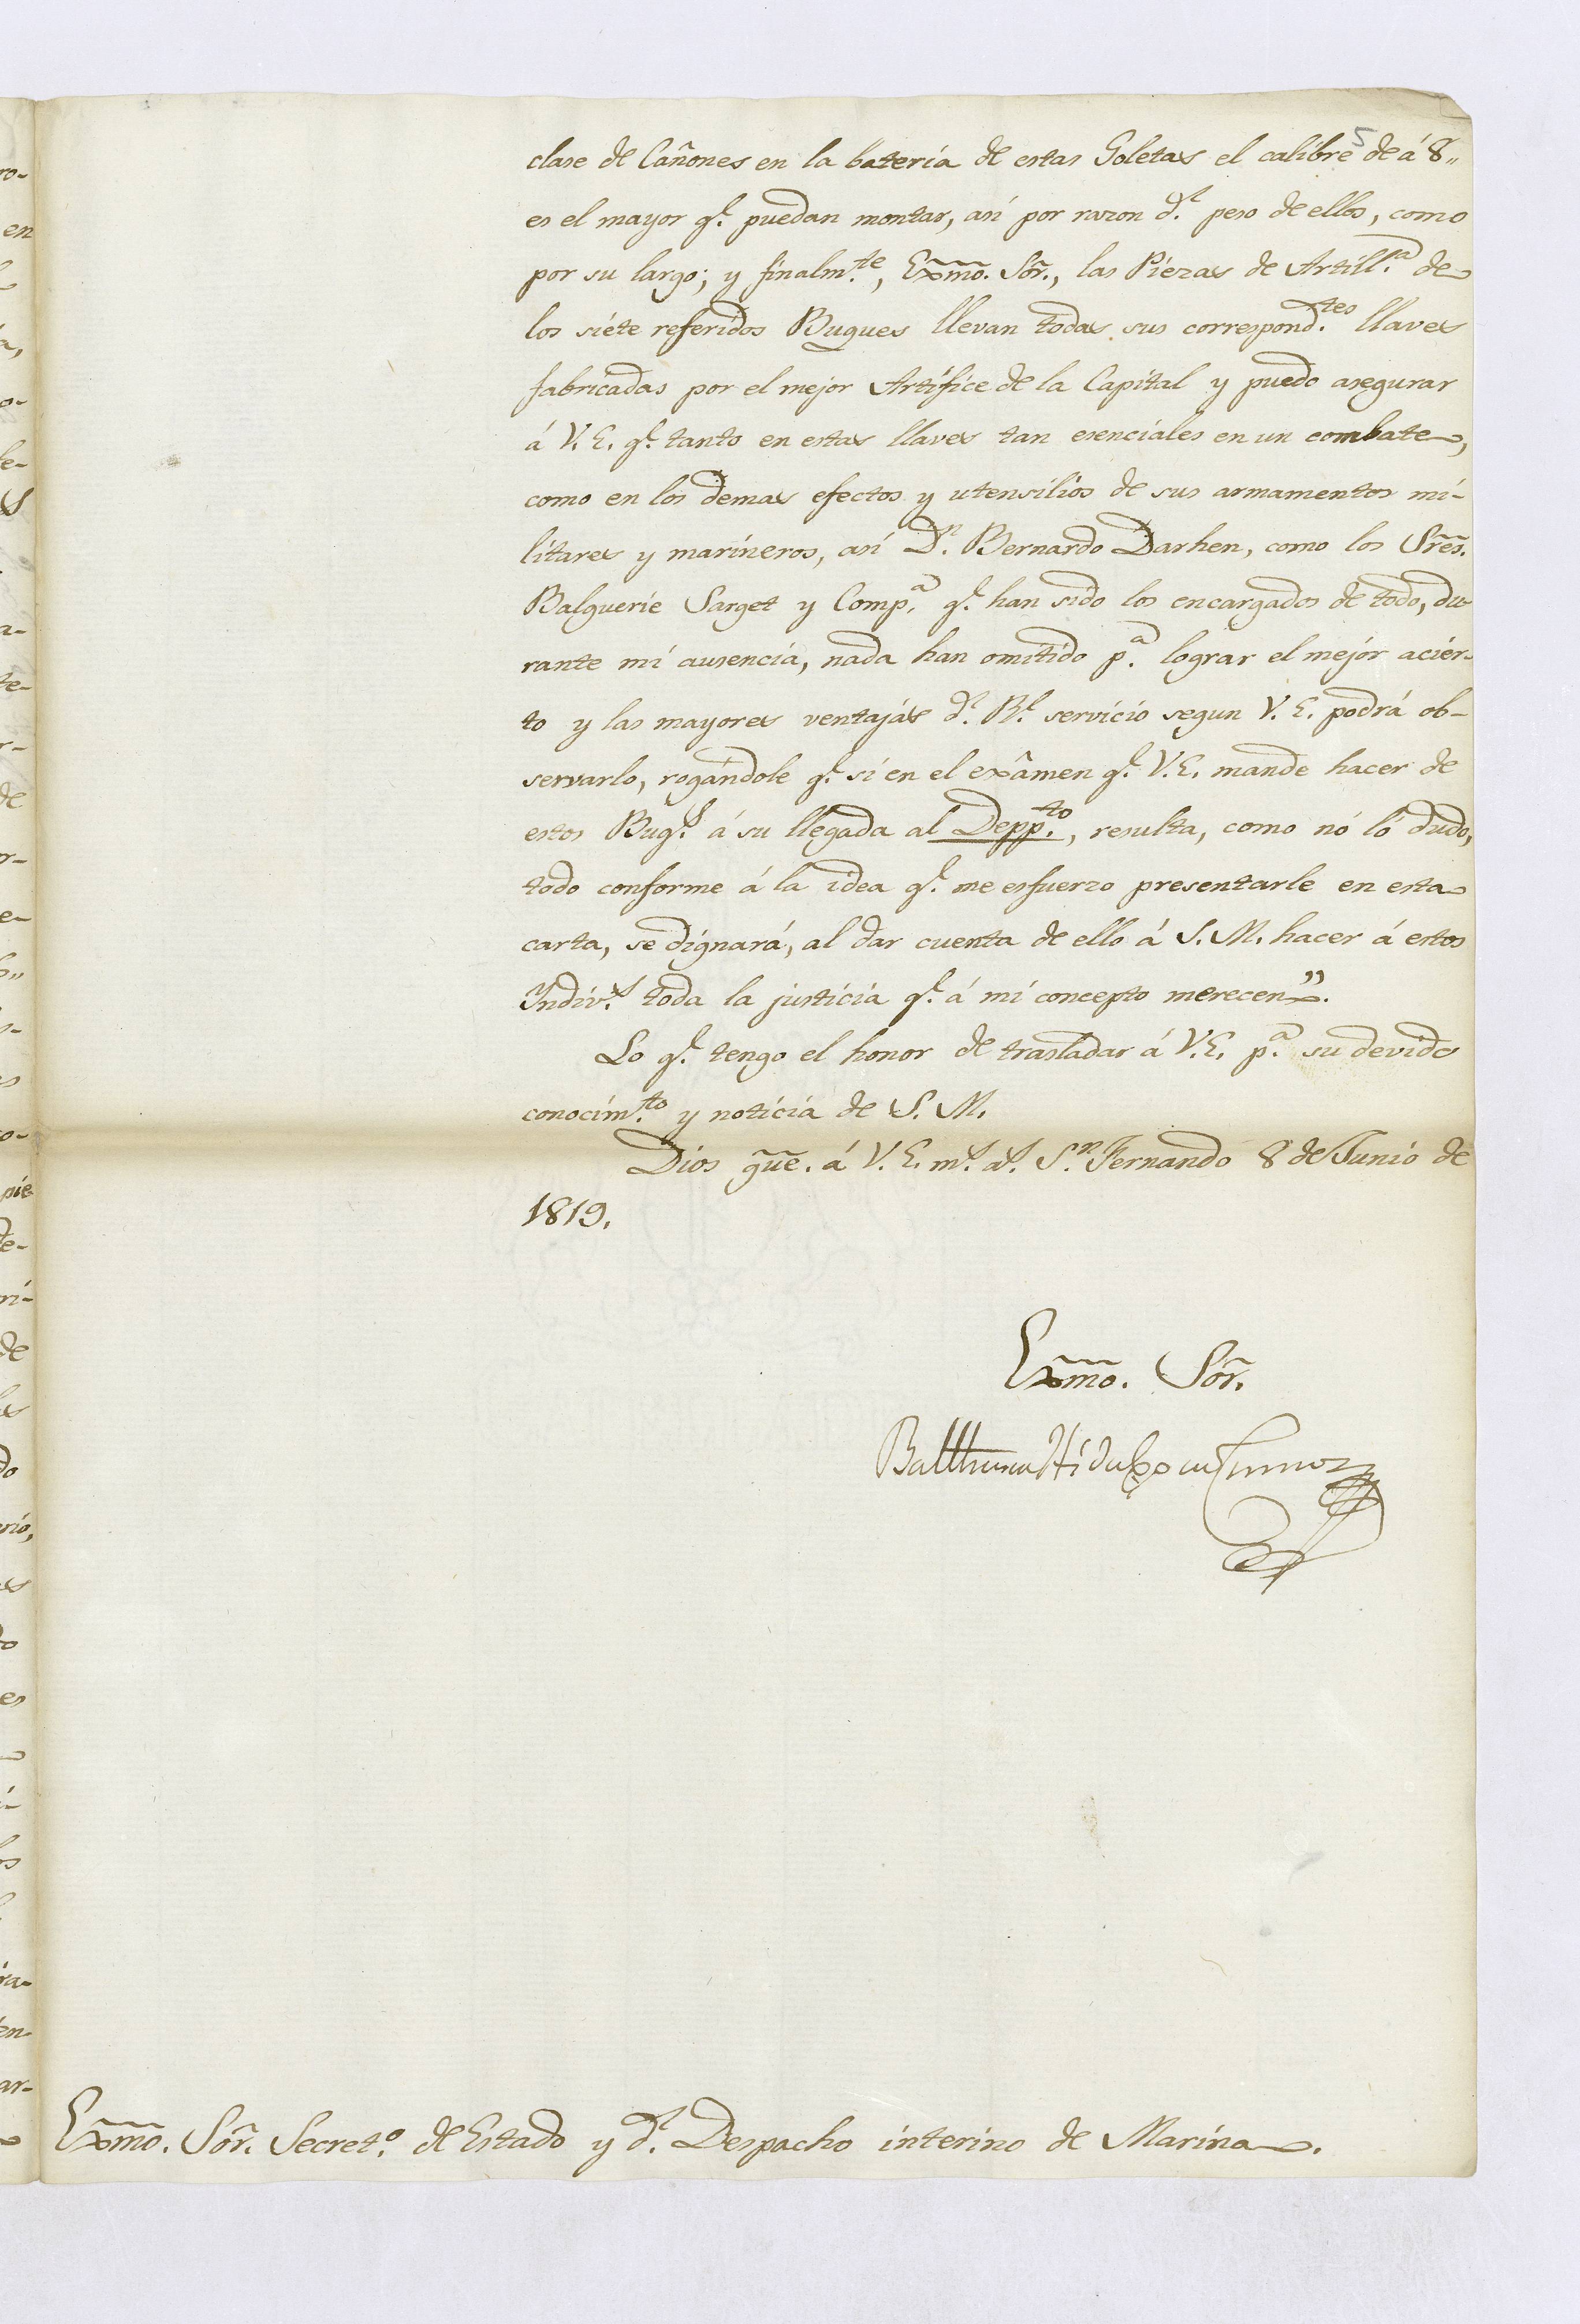 5
clase de Cañones en la batería de estas Goletas el calibre de á 8,,
es el mayor q.^e puedan montar, asi por razon d.^l peso de ellos, como
por su largo; y finalm.^te, Exmo. Sõr., las Piezas de Artill.^a de
los siete referidos Buques llevan todas sus correspond.^tes llaves
fabricadas por el mejor Artífice de la Capital y puedo asegurar
á V. E. q.^e tanto en estas llaves tan esenciales en un combate,
como en los demas efectos y utensilios de sus armamentos mi-
litares y marineros, asi D.^n Bernardo Darhen, como los Sres.
Balguerie Sarget y Comp.^a q.^e han sido los encargados de todo, du-
rante mi ausencia, nada han omitido p.^a lograr el mejor acier-
to y las mayores ventajas d.^l R.^l servicio segun V. E. podrá ob-
servarlo, rogándole q.^e si en el exâmen q.^e V. E. mande hacer de
estos Buq.^s á su llegada al Depp.^to, resulta, como nó ló dudo,
todo conforme á la idea q.^e me esfuerzo presentarle en esta
carta, se dignará, al dar cuenta de ello á S. M. hacer á estos
Indiv.^s toda la justicia q.^e á mi concepto merecen".
Lo q.^e tengo el honor de trasladar á V. E. p.^a su devido
conocim.^to y noticia de S. M.
Dios gũe. á V. E. m.^s a.^s S.^n Fernando 8 de Junio de
1819.
Exmo. Sõr.
Balthasar Hidalgo de Cisneros
Exmo. Sõr. Secret.^o de Estado y d.^l Despacho interino de Marina.